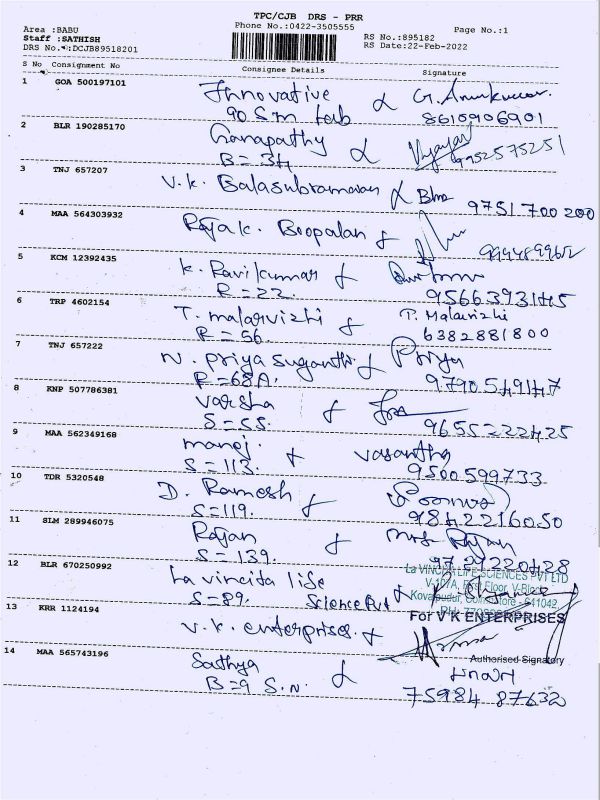 TPC/CJB DRS - PRR
Area :BABU
Phone No.:0422-3505555
Page No.:1
Staff :SATHISH
RS No.:895182
DRS No. :DCJB89518201
RS Date:22-Feb-2022
S No Consignment No Consignee Details Signature
1 GOA 500197101 Innovative & G. Arunkumar.
90 S.m 8610906901
2 BLR 190285170 Ganapathy & Vijayar
B = 34 9952575251
3 TNJ 657207 V.k. Balasubramanan & 9751700200
4 MAA 564303932 Raja k. Boopalan &
5 KCM 12392435 K. Ravikumar &
R = 22. 9566393145
6 TRP 4602154 T. malarvizhi & T. Malarvizhi
R = 56. 6382881800
7 TNJ 657222 N. priya suganthi & Priya
R = 68A. 9790549147
8 KNP 507786381 Varsha &
S = 55. 9655222425
9 MAA 562349168 manoj. & vasantha
S = 113. 9500599733
10 TDR 5320548 D. Ramesh &
S = 119. 9842216050
11 SLM 289946075 Rajan & Mrs Rajan
S = 139.
12 BLR 670250992 La vincita life &
S = 89. Science Pvt
La VINCITA LIFE SCIENCES PVT LTD
641042
13 KRR 1124194 V.K. enterprises. &
For V K ENTERPRISES
Authorised Signatory
14 MAA 565743196 Sathya &
B = 9 S.N. 75984 87632